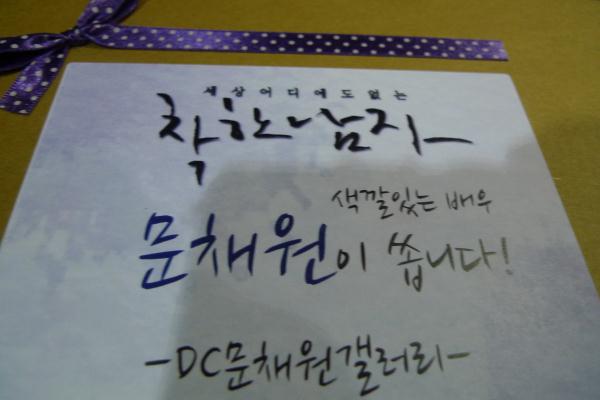 세상어디에도없는
착한남자
색깔있는 배우
문채원이 쏩니다!
-DC문채원갤러리-